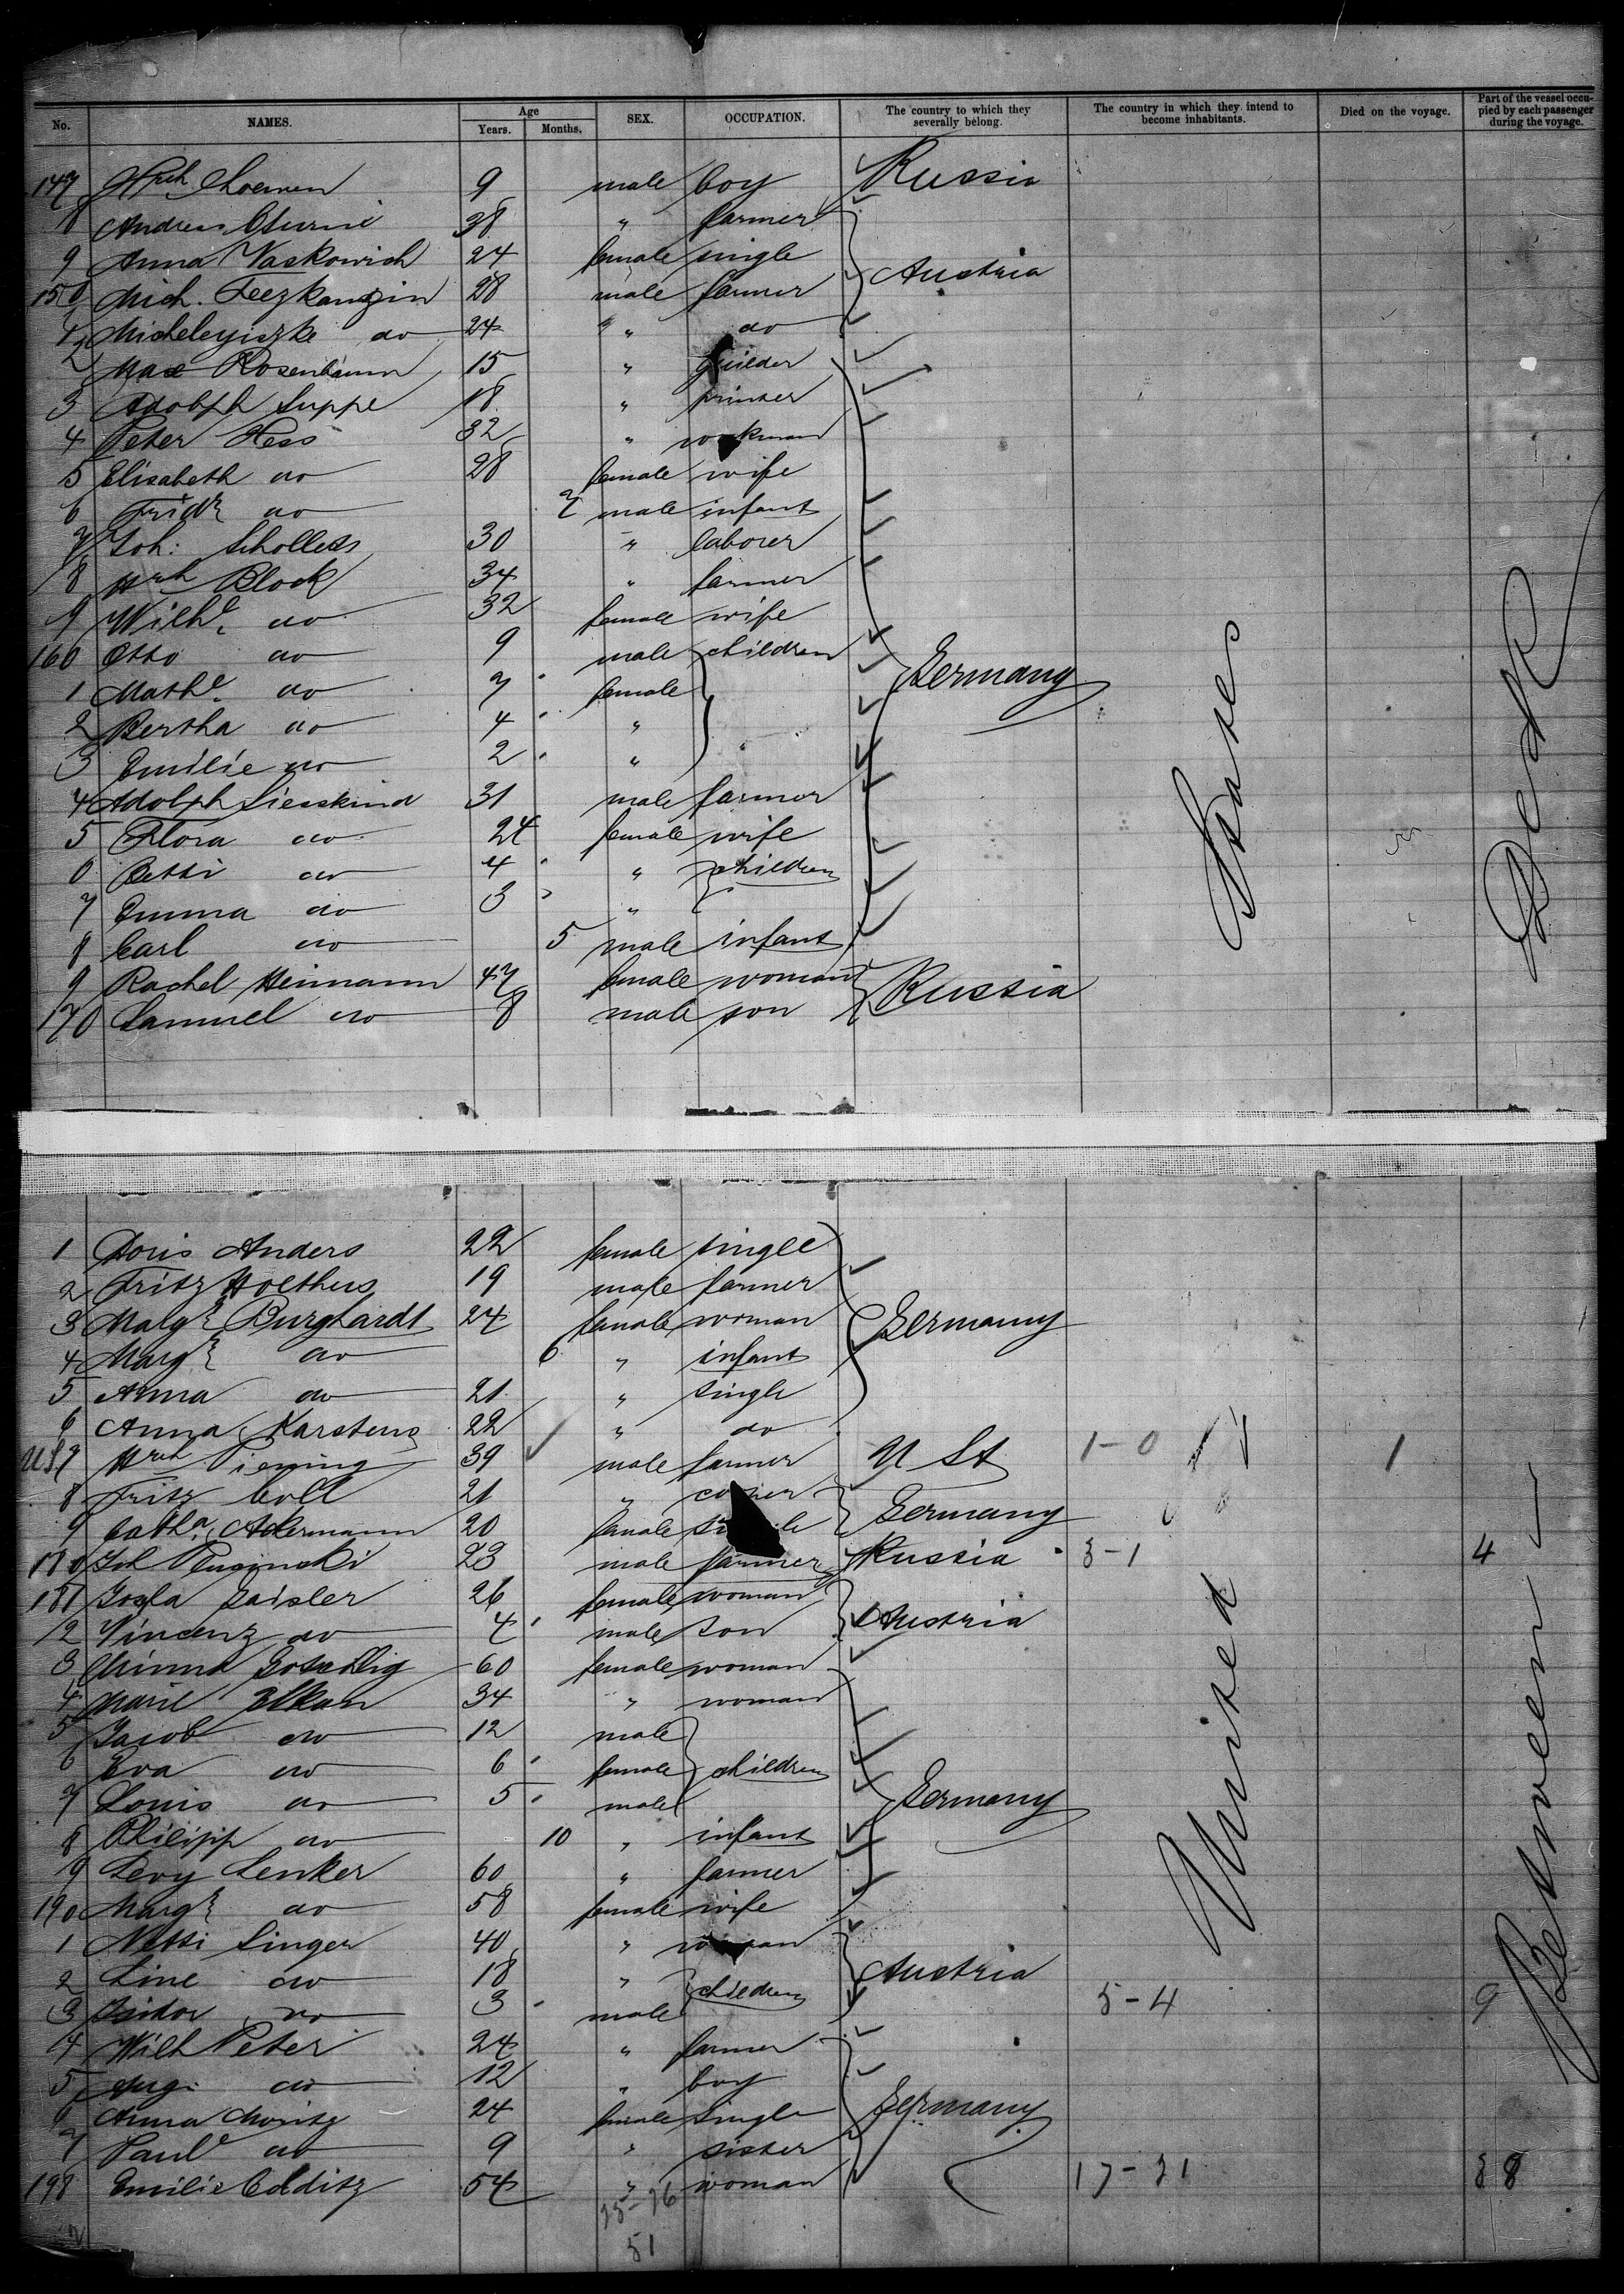 No. NAMES. Age Years. Months. SEX. OCCUPATION. The country to which they severally belong. The country in which they intend to become inhabitants. Died on the voyage. Part of the vessel occupied by each passenger during the voyage.
147 Hrch 9 male boy Russia
8 Andreas 38 " farmer
9 Anna Vaskowich 24 female single Austria
150 Mich. 28 male farmer
1 do 24 " do
2 Max Rosenbaum 15 " guilder
3 Adolph Suppe 18 " printer
4 Peter Hess 32 " workman
5 Elisabeth do 28 female wife
6 Fridr do male infant
7 Joh: 30 " laborer
8 Hrch Block 34 " farmer
9 Wilhe do 32 female wife
160 Otto do 9 male children Germany
1 Mathe do 7 female
2 Bertha do 4 "
3 Emilie do 2 "
4 Adolph Siesskind 31 male farmer
5 Flora do 24 female wife
6 Betti do 4 " children
7 Emma do 3 "
8 Carl do 5 male infant
9 Rachel Heimann 47 female woman Russia
170 Samuel do 8 male son
States
Deck
1 Doris Anders 22 female single
2 Fritz Holthus 19 male farmer
3 Burghardt 24 female woman Germany
4 Margr do 6 " infant
5 Anna do 21 " single
6 Anna Karstens 22 " do
US 7 Hrch Piening 39 male farmer U St 1-0 1
8 Fritz Coll 21 " Germany
9 Catha. Ackermann 20 female single
180 Joh 23 male farmer Russia 3-1 4
181 Zaisler 26 female woman Austria
2 Vincenz do 4 male son
3 Minna 60 female woman
4 Marie Elkan 34 " woman
5 Jacob do 12 male
6 Eva do 6 female children
7 Louis do 5 male Germany
8 Philipp do 10 " infant
9 Levy Lenker 60 " farmer
190 Margr do 58 female wife
1 Netti Singer 40 " woman
2 Line do 18 " children Austria
3 Isidor do 3 male 5-4 9
4 Wilh Peter 24 " farmer
5 Aug. do 12 " boy
6 Anna Moritz 24 female single Germany
7 Paule do 9 " sister
198 Emilie Colditz 54 " woman 17-21 38
51
United
Between